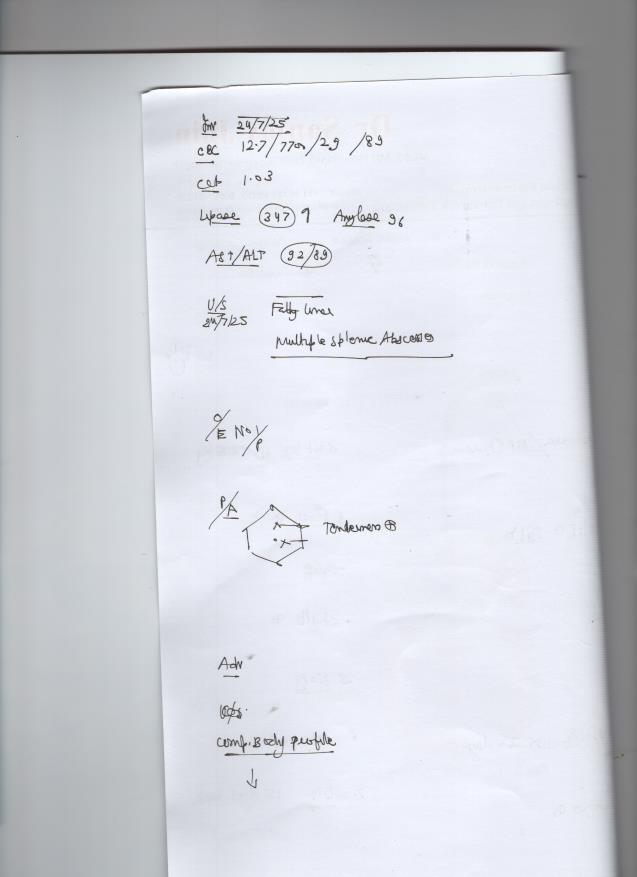 Inv 24/7/25
CBC 12.7/7700/29/89
cet 1.03
Lipase 347 ↑ Amylase 96
AST/ALT 92/89
U/S Fatty liver
24/7/25
Multiple splenic Abscess
O/E No P
P/A
Tenderness ⊕
Adv
Comp. Body profile
↓